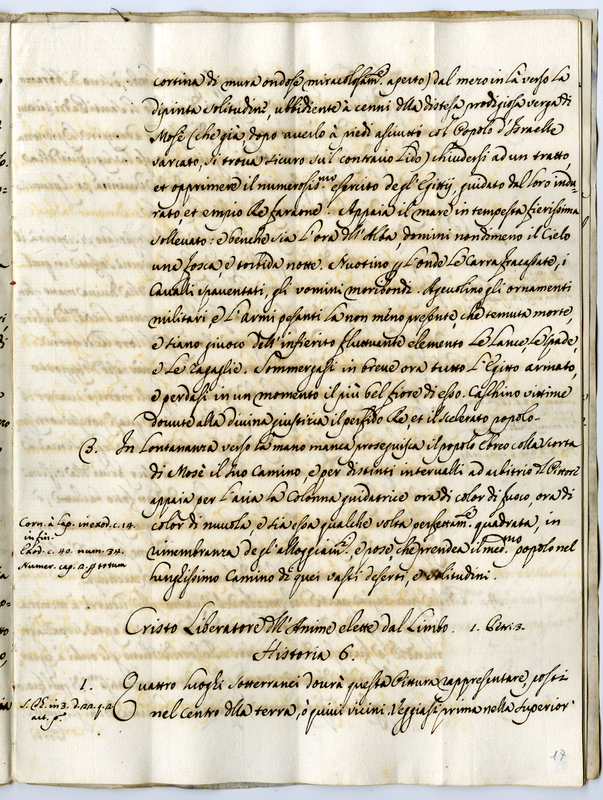 cortina di mura ondose miracolosam.te aperto) dal mezo in là verso la
dipinta solitudine, ubbidiente à cenni dlla distesa prodigiosa verga di
Mosè (che già dopo averlo à piedi asciutto col Popolo d'Israelle
varcato, si trova sicuro sul contrario Lido) chiudersi ad un tratto,
et opprimere il numerosis.mo esercito degl'Egitij, guidato dal loro indu-
rato, et empio Re faraone. Appaia il mare in tempesta fierissima
sollevato: e benche sia l'ora dll'Alba, domini nondimeno il Cielo
una fosca, e torbida notte. Nuotino p l'onde le Carra fracassate, i
Cavalli spaventati, gli uomini moribondi. Agevolino gli ornamenti
militari e l'Armi pesanti la non meno presente, che temuta morte,
e siano giuoco dell'infierito fluttuante elemento le lance, le spade,
e le zagaglie. Sommergasi in breve ora tutto l'Egitto armato,
e perdasi in un momento il più bel fiore di esso. Caschino vittime
dovute alla divina giustizia il perfido Re, et il scelerato popolo.
3. In lontananza verso la mano manca proseguisca il popolo Ebreo colla scorta
di Mosè il suo Camino, e per distinti intervalli ad arbitrio dl Pittore
appaia per l'aria la Colonna guidatrice ora di color di fuoco, ora di
Corn. à Lap. in exod. c. 14.
color di nuvola, e sia essa qualche volta perfettam.te quadrata, in
in fin.
Exod. c. 40. num. 34.
rimembranza degl'alloggiam.ti, e pose che prendea il med.mo popolo nel
Numer. cap. 2. p totum
lunghissimo Camino di quei vasti deserti, e solitudini.
Cristo Liberatore dll'Anime elette dal Limbo. 1. Petri 3.
Historia 6.
1. Quattro luoghi sotterranei dourà questa Pittura rappresentare, posti
S. Th. in 3. d. 22. q. 2.
nel Centro dlla terra, ò quivi vicini. Veggiasi prima nella superior
17